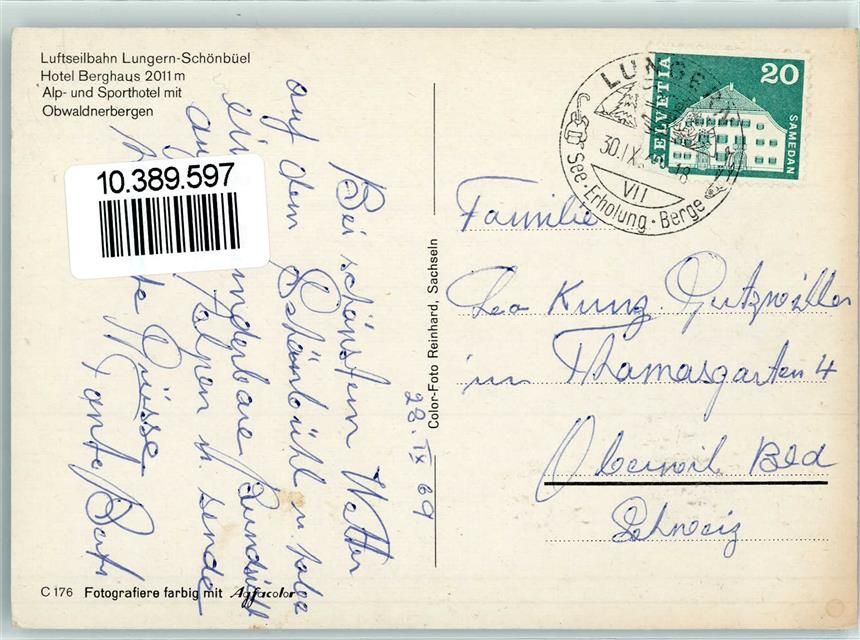 Luftseilbahn Lungern-Schönbüel
Hotel Berghaus 2011 m
Alp- und Sporthotel mit
Obwaldnerbergen
10.389.597
28. IX 69
Bei schönstem Wetter
auf dem Schönbühl u. habe
eine wunderbare Rundsicht
auf Alpen u. sende
Grüsse
Tante
Color-Foto Reinhard, Sachseln
C 176 Fotografiere farbig mit Agfacolor
HELVETIA
20
SAMEDAN
LUNGERN
30.IX
18
VII
See-Erholung-Berge
Familie
Leo Kunz-Gutzwiller
im Thomasgarten 4
Oberwil Bld
Schweiz